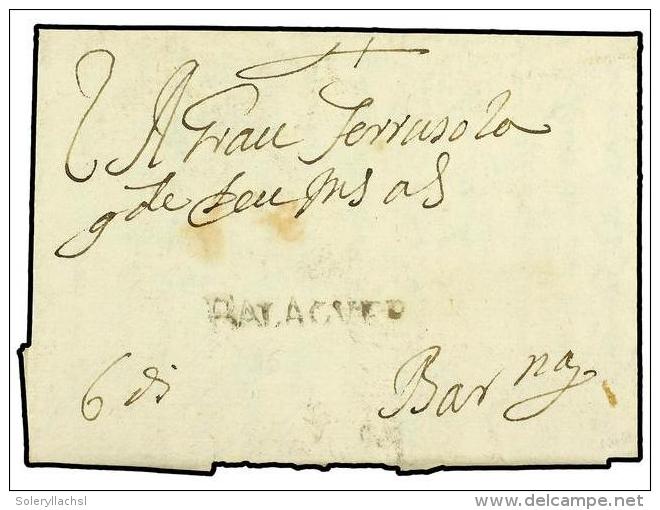 A Grau Terrasola
gde Deu ms as
BALAGUER
6 di
Barna
Soleryllachsl
delcampe.net